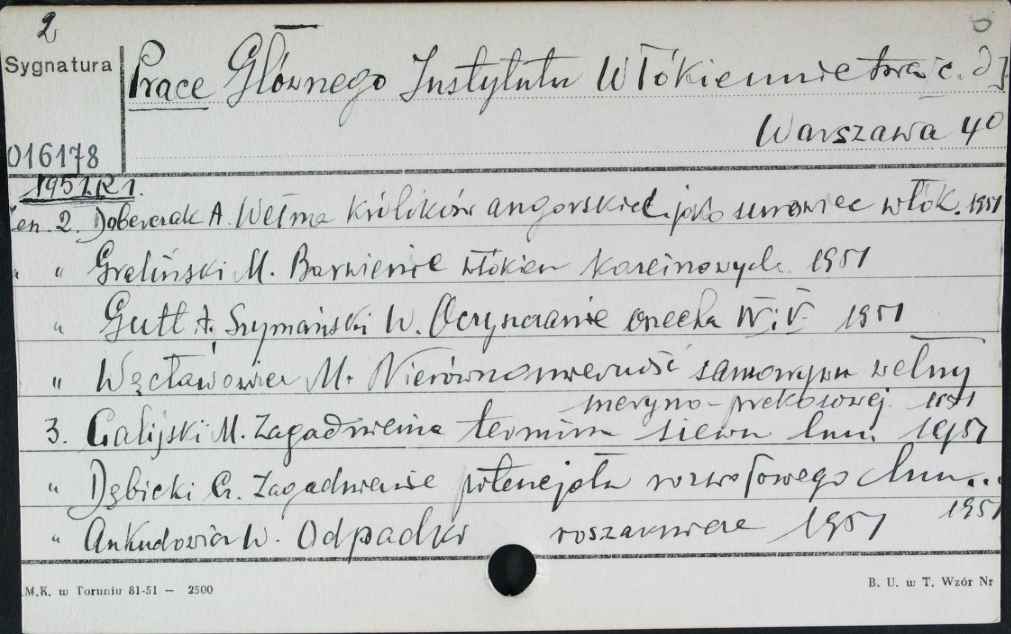 2
Sygnatura
Prace Głównego Instytutu Włókiennictwa c. d
Warszawa 40
016178
1951 R 1.
2. Doberczak A. Wełna królików angorskich jako surowiec włók. 1951
" " Graliński M. Barwienie włókien kazeinowych 1951
" Gutt A. Szymański W. Oczyszczanie ścieków IV. V. 1951
" Węcławowicz M. Nierównomierność samorywu wełny
meryno-prekosowej 1951
3. Galijski M. Zagadnienie terminu siewu lnu. 1951
" Dębicki G. Zagadnienie potencjału rozwojowego lnu...
1951
" Ankudowicz W. Odpadki roszarnicze 1951
.M.K. w Toruniu 81-51 — 2500
B. U. w T. Wzór Nr